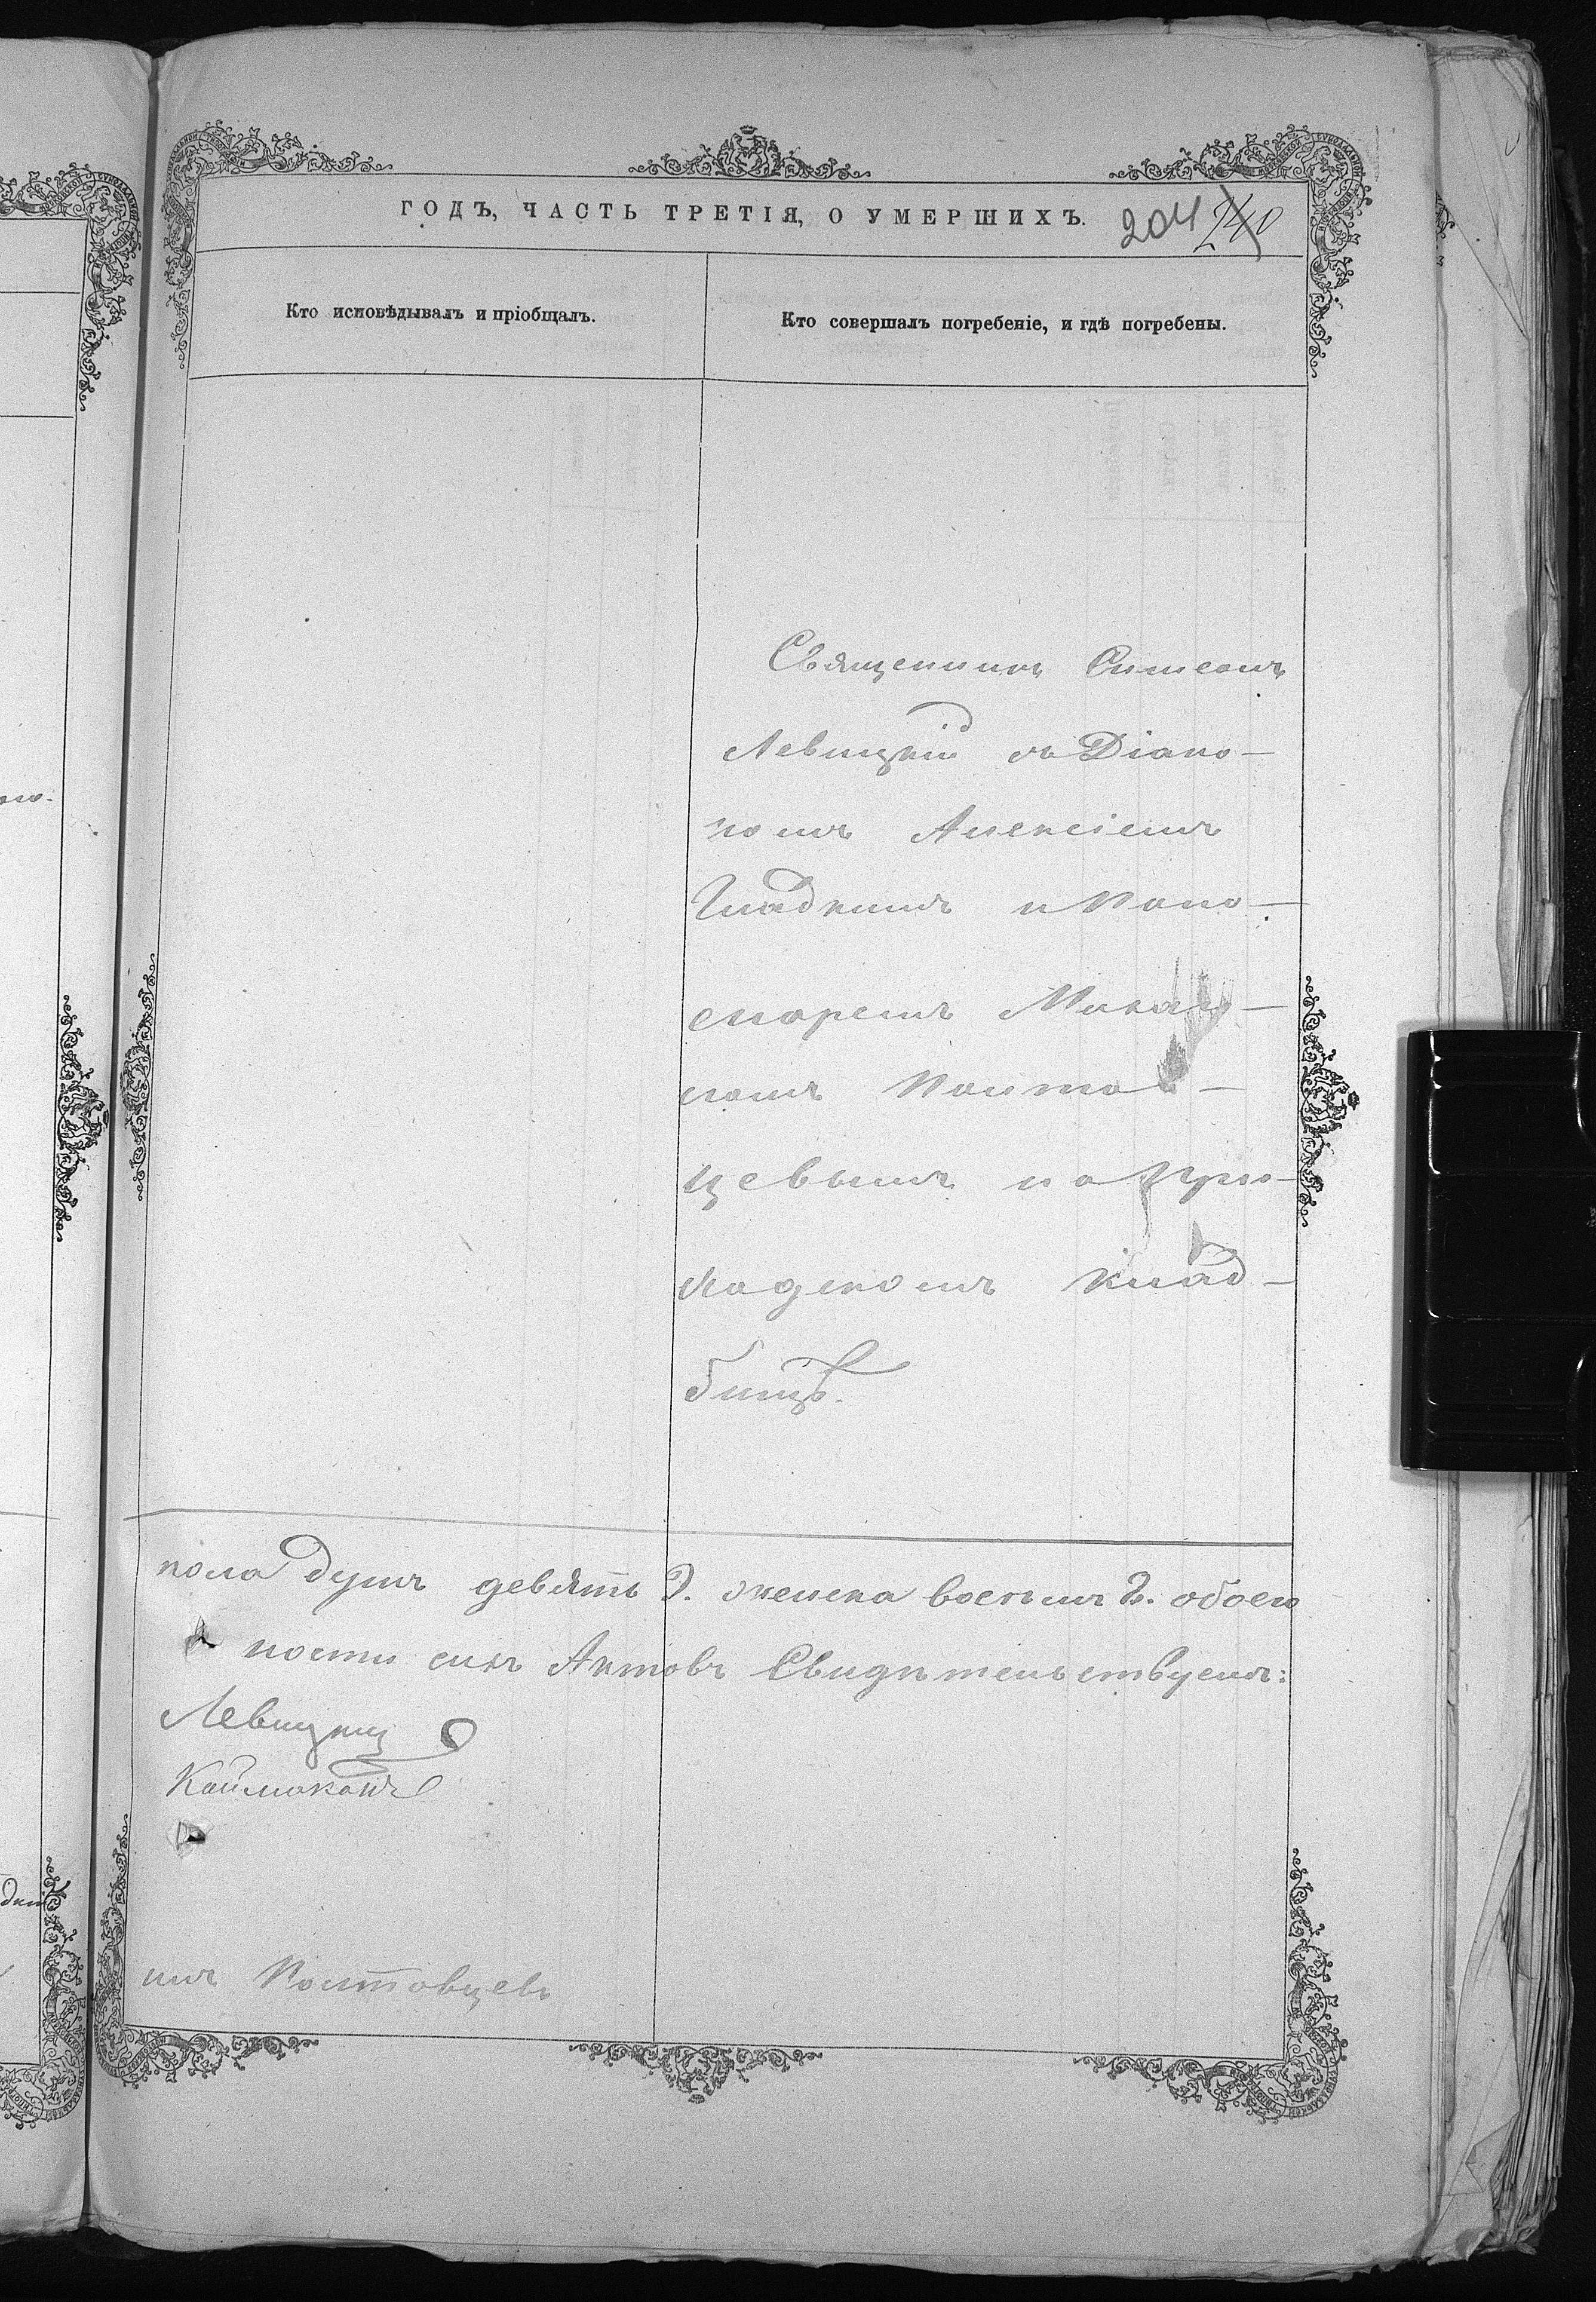 ГОДЪ, ЧАСТЬ ТРЕТІЯ, О УМЕРШИХЪ. 204 240
Кто исповѣдывалъ и пріобщалъ.
Кто совершалъ погребеніе, и гдѣ погребены.
Священникъ Симеонъ
Левицкій съ Діако-
номъ Алексіемъ
Гладкимъ и Поно-
маремъ
Полто-
цевымъ на При-
ходскомъ клад-
бищѣ.
пола душъ девять 9. женска восемь 8. обоего
ности сихъ Актовъ Свидѣтельствуемъ:
Левицкій
Каймаканъ
Полтовцевъ